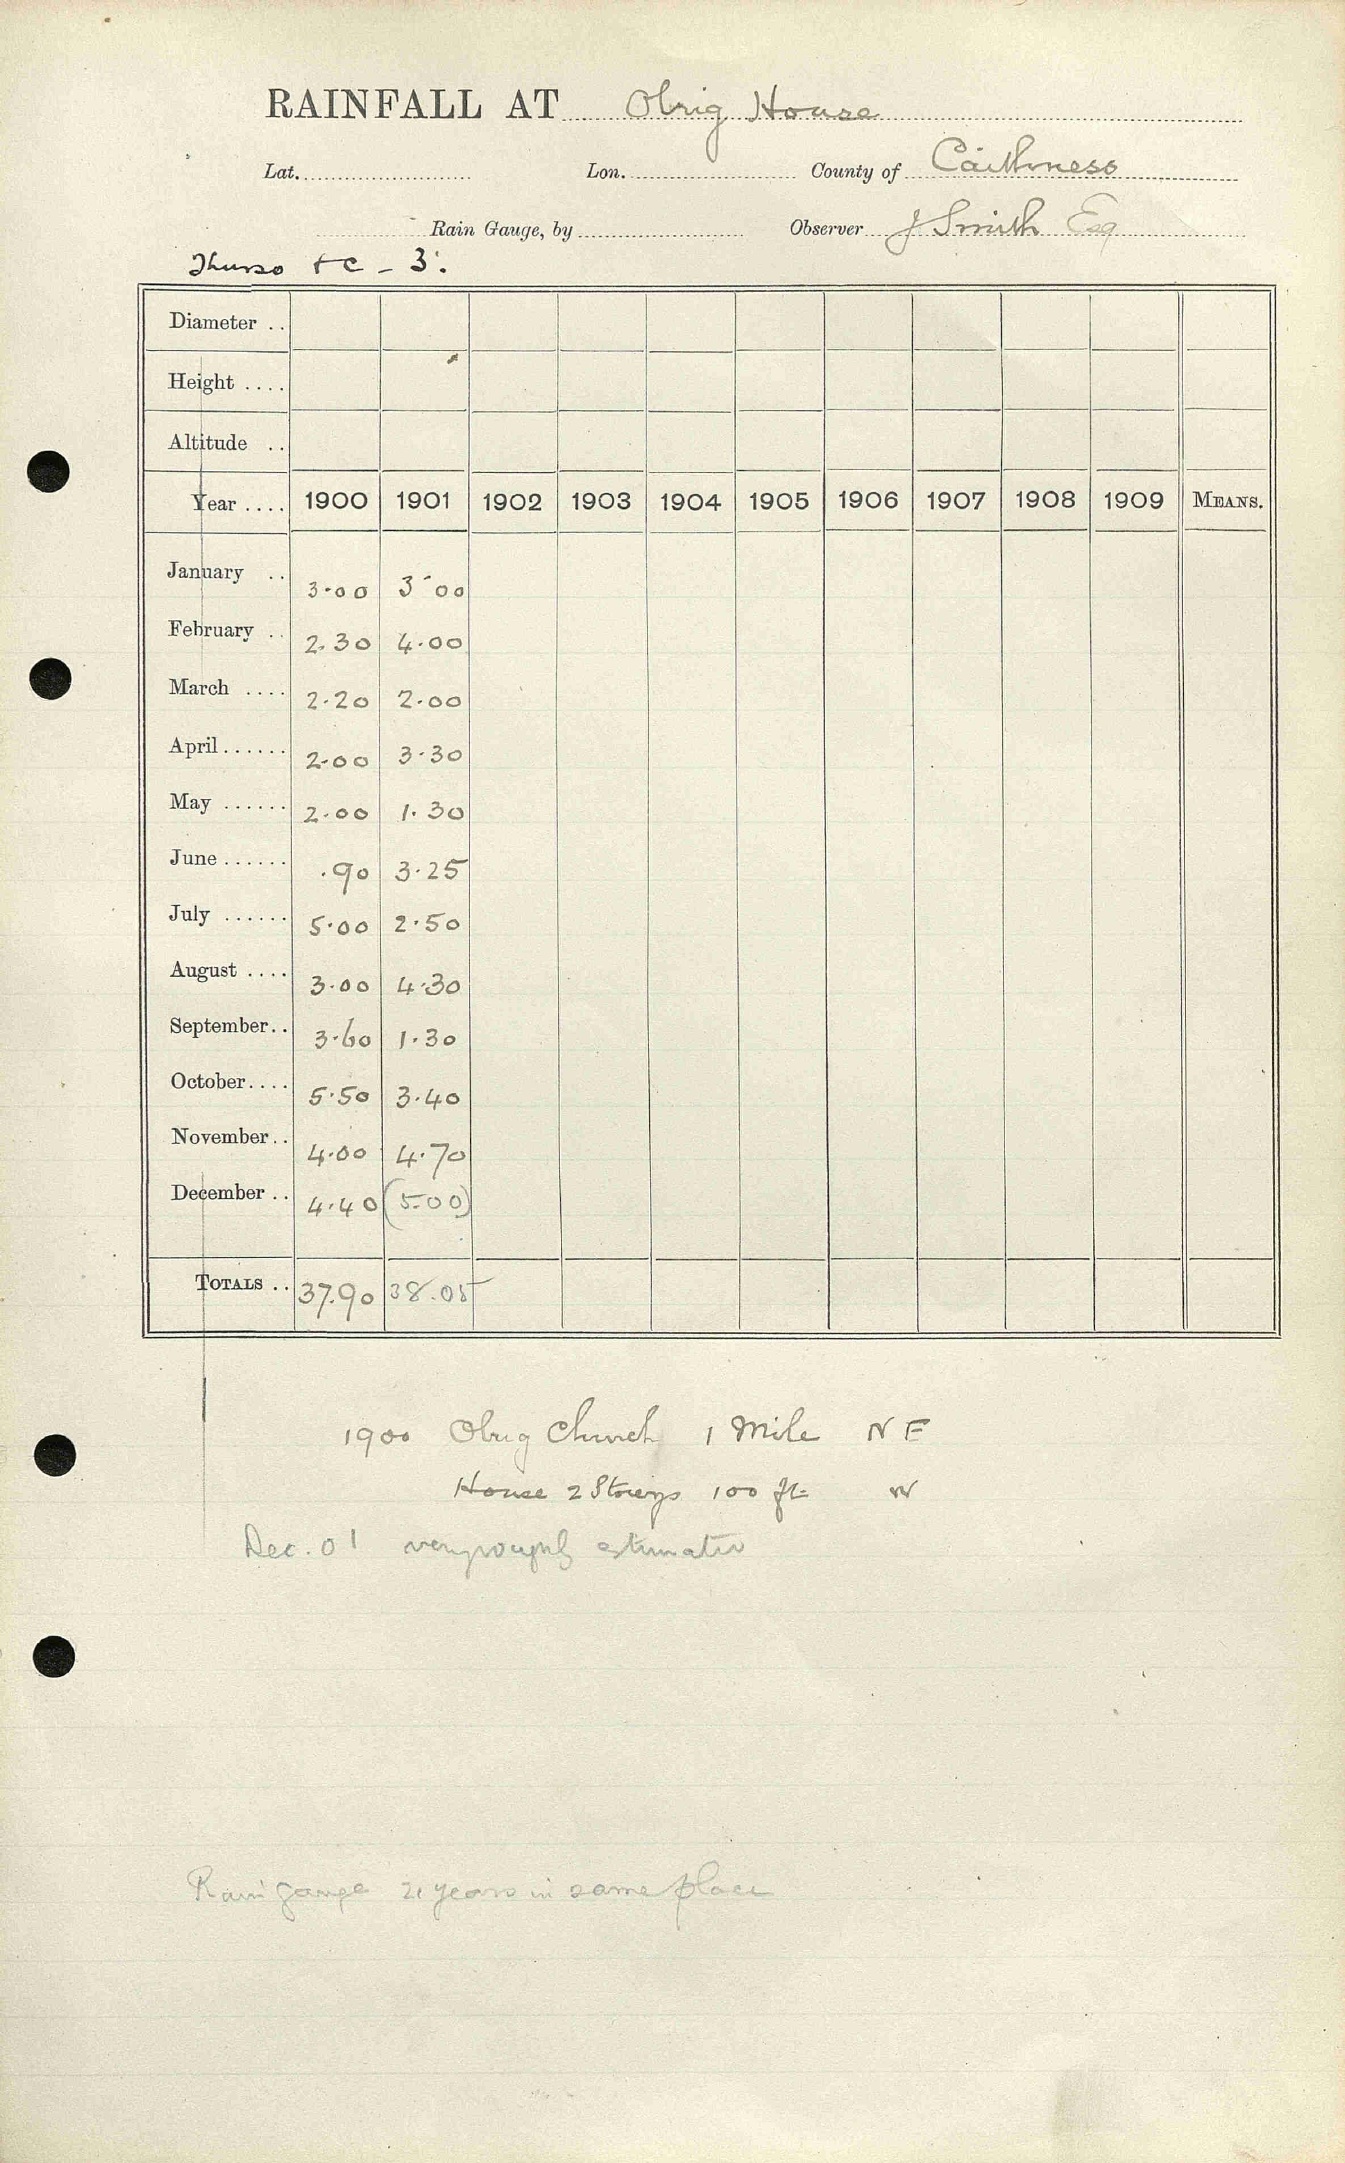 RAINFALL AT Olrig House
Lat. Lon. County of Caithness
Rain Gauge, by Observer J Smith Esq
Thurso + C - 3.
Diameter ..
Height ....
Altitude ..
Year .... 1900 1901 1902 1903 1904 1905 1906 1907 1908 1909 MEANS.
January .. 3.00 3.00
February .. 2.30 4.00
March .... 2.20 2.00
April...... 2.00 3.30
May ...... 2.00 1.30
June...... .90 3.25
July ...... 5.00 2.50
August .... 3.00 4.30
September.. 3.60 1.30
October.... 5.50 3.40
November.. 4.00 4.70
December .. 4.40 (5.00)
TOTALS .. 37.90 38.05
1900 Olrig Church 1 Mile NE
House 2 Storeys 100 ft W
Dec. 01 very roughly estimated
Rain gauge 21 years in same place